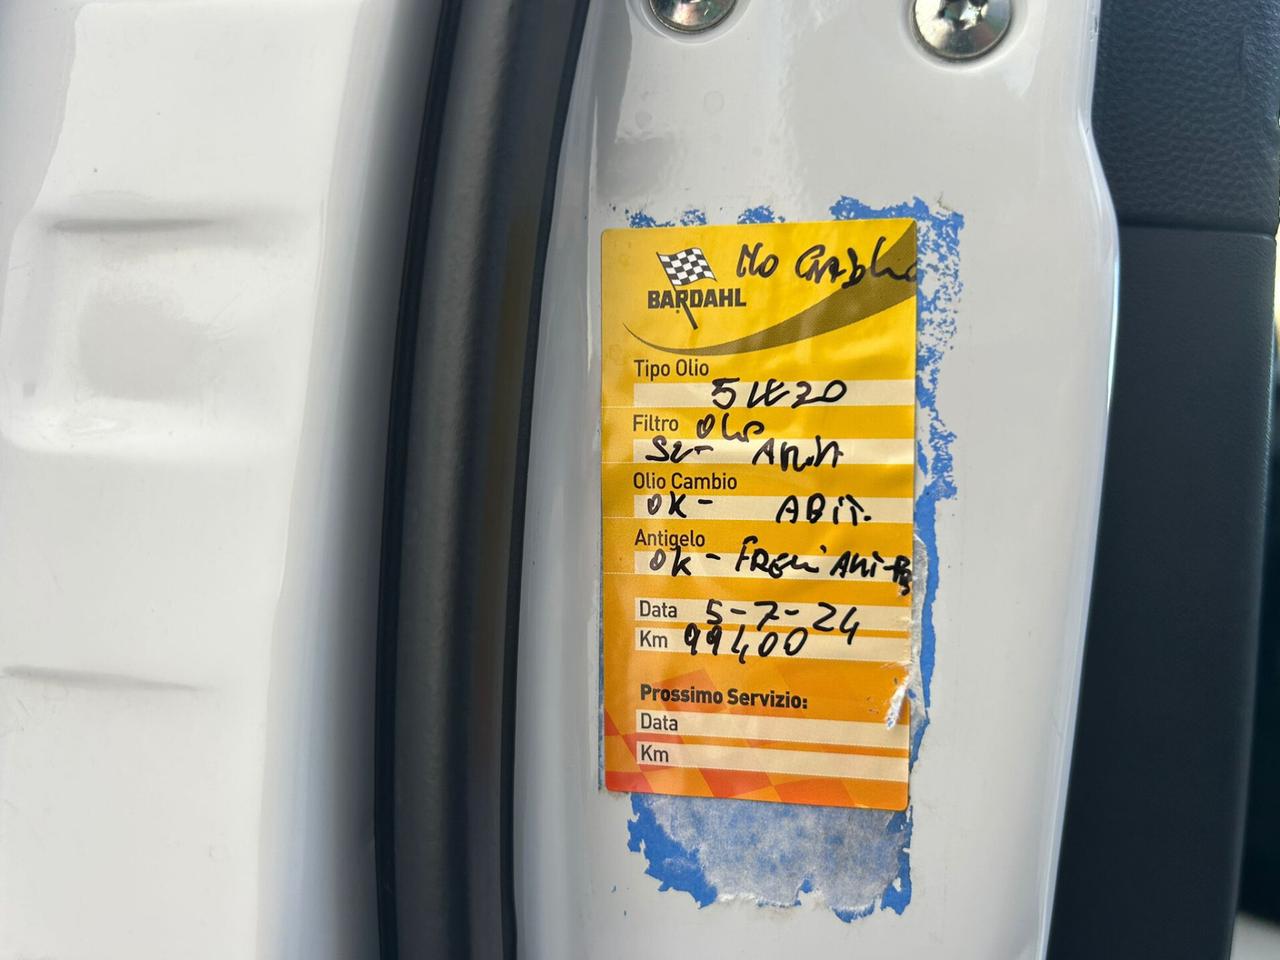 No
BARDAHL
Tipo Olio
5W20
Filtro Olio
SI- ARIA
Olio Cambio
OK- ABIT.
Antigelo
OK - FRENI
Data 5-7-24
Km 99400
Prossimo Servizio:
Data
Km